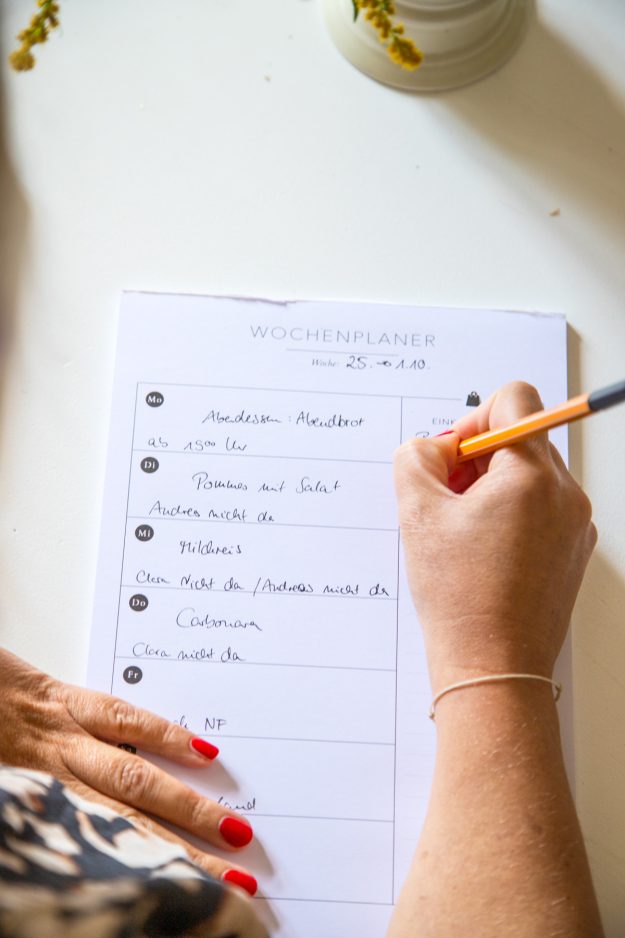 WOCHENPLANER
Woche: 25. → 1.10.
Mo
Abendessen: Abendbrot
ab 19 00 Uhr
EINK
Di
Pommes mit Salat
Andreas nicht da
Mi
Milchreis
Clara Nicht da / Andreas nicht da
Do
Carbonara
Clara nicht da
Fr
NF